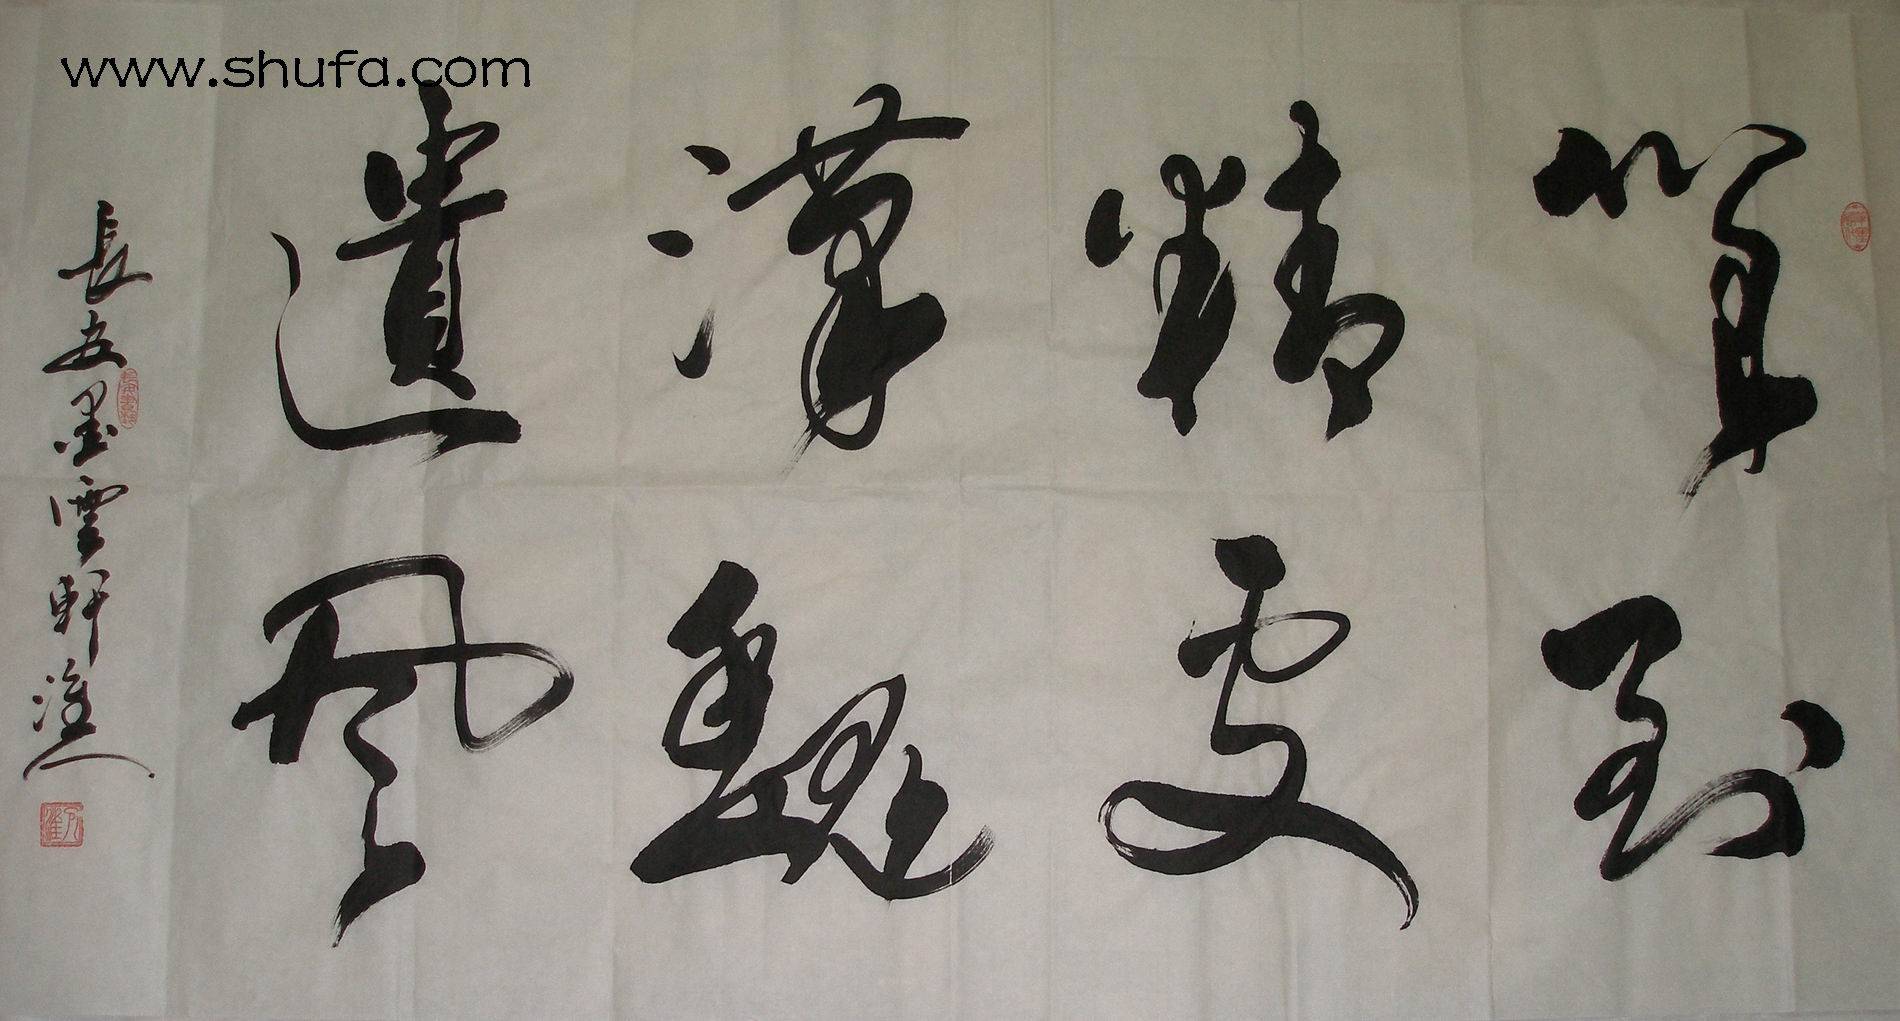 www.shufa.com
筆到
精處
漢魏
遺風
長安墨雲軒淮人